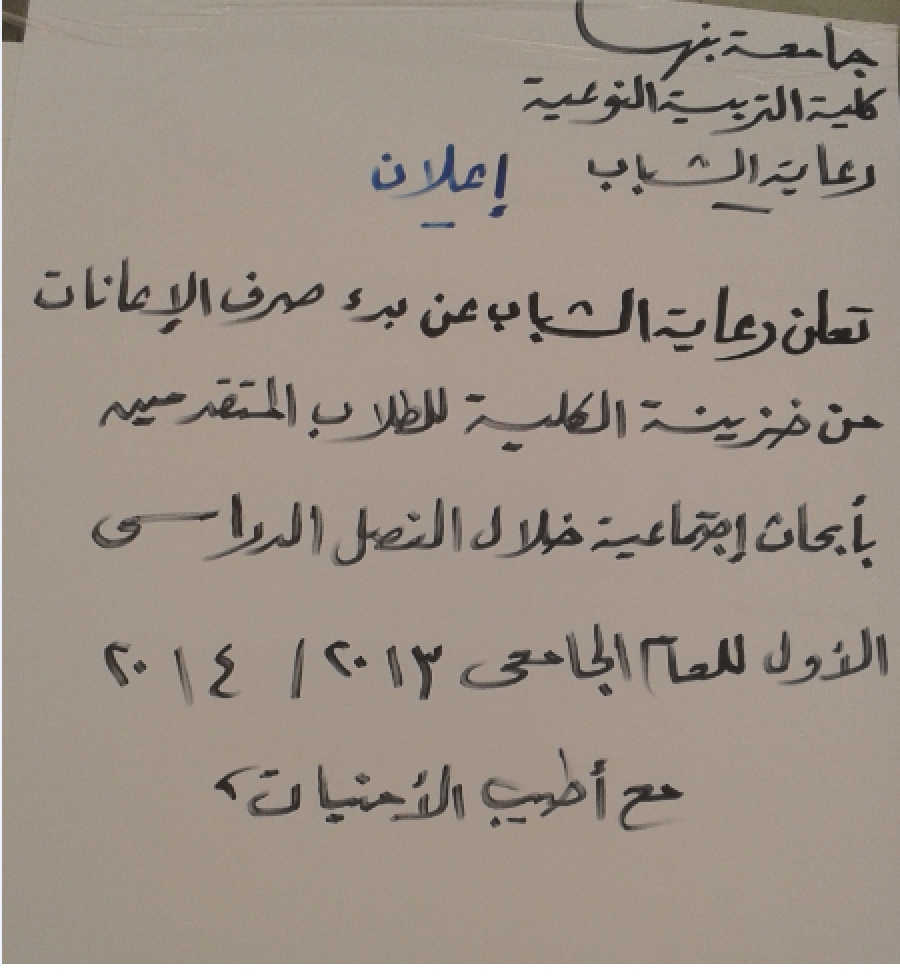 جامعة بنها
كلية التربية النوعية
رعاية الشباب إعلان
تعلن رعاية الشباب عن بدء صرف الإعانات
من خزينة الكلية للطلاب المتقدمين
بأبحاث إجتماعية خلال الفصل الدراسى
الأول للعام الجامعى ٢٠١٣ / ٢٠١٤
مع أطيب الأمنيات،